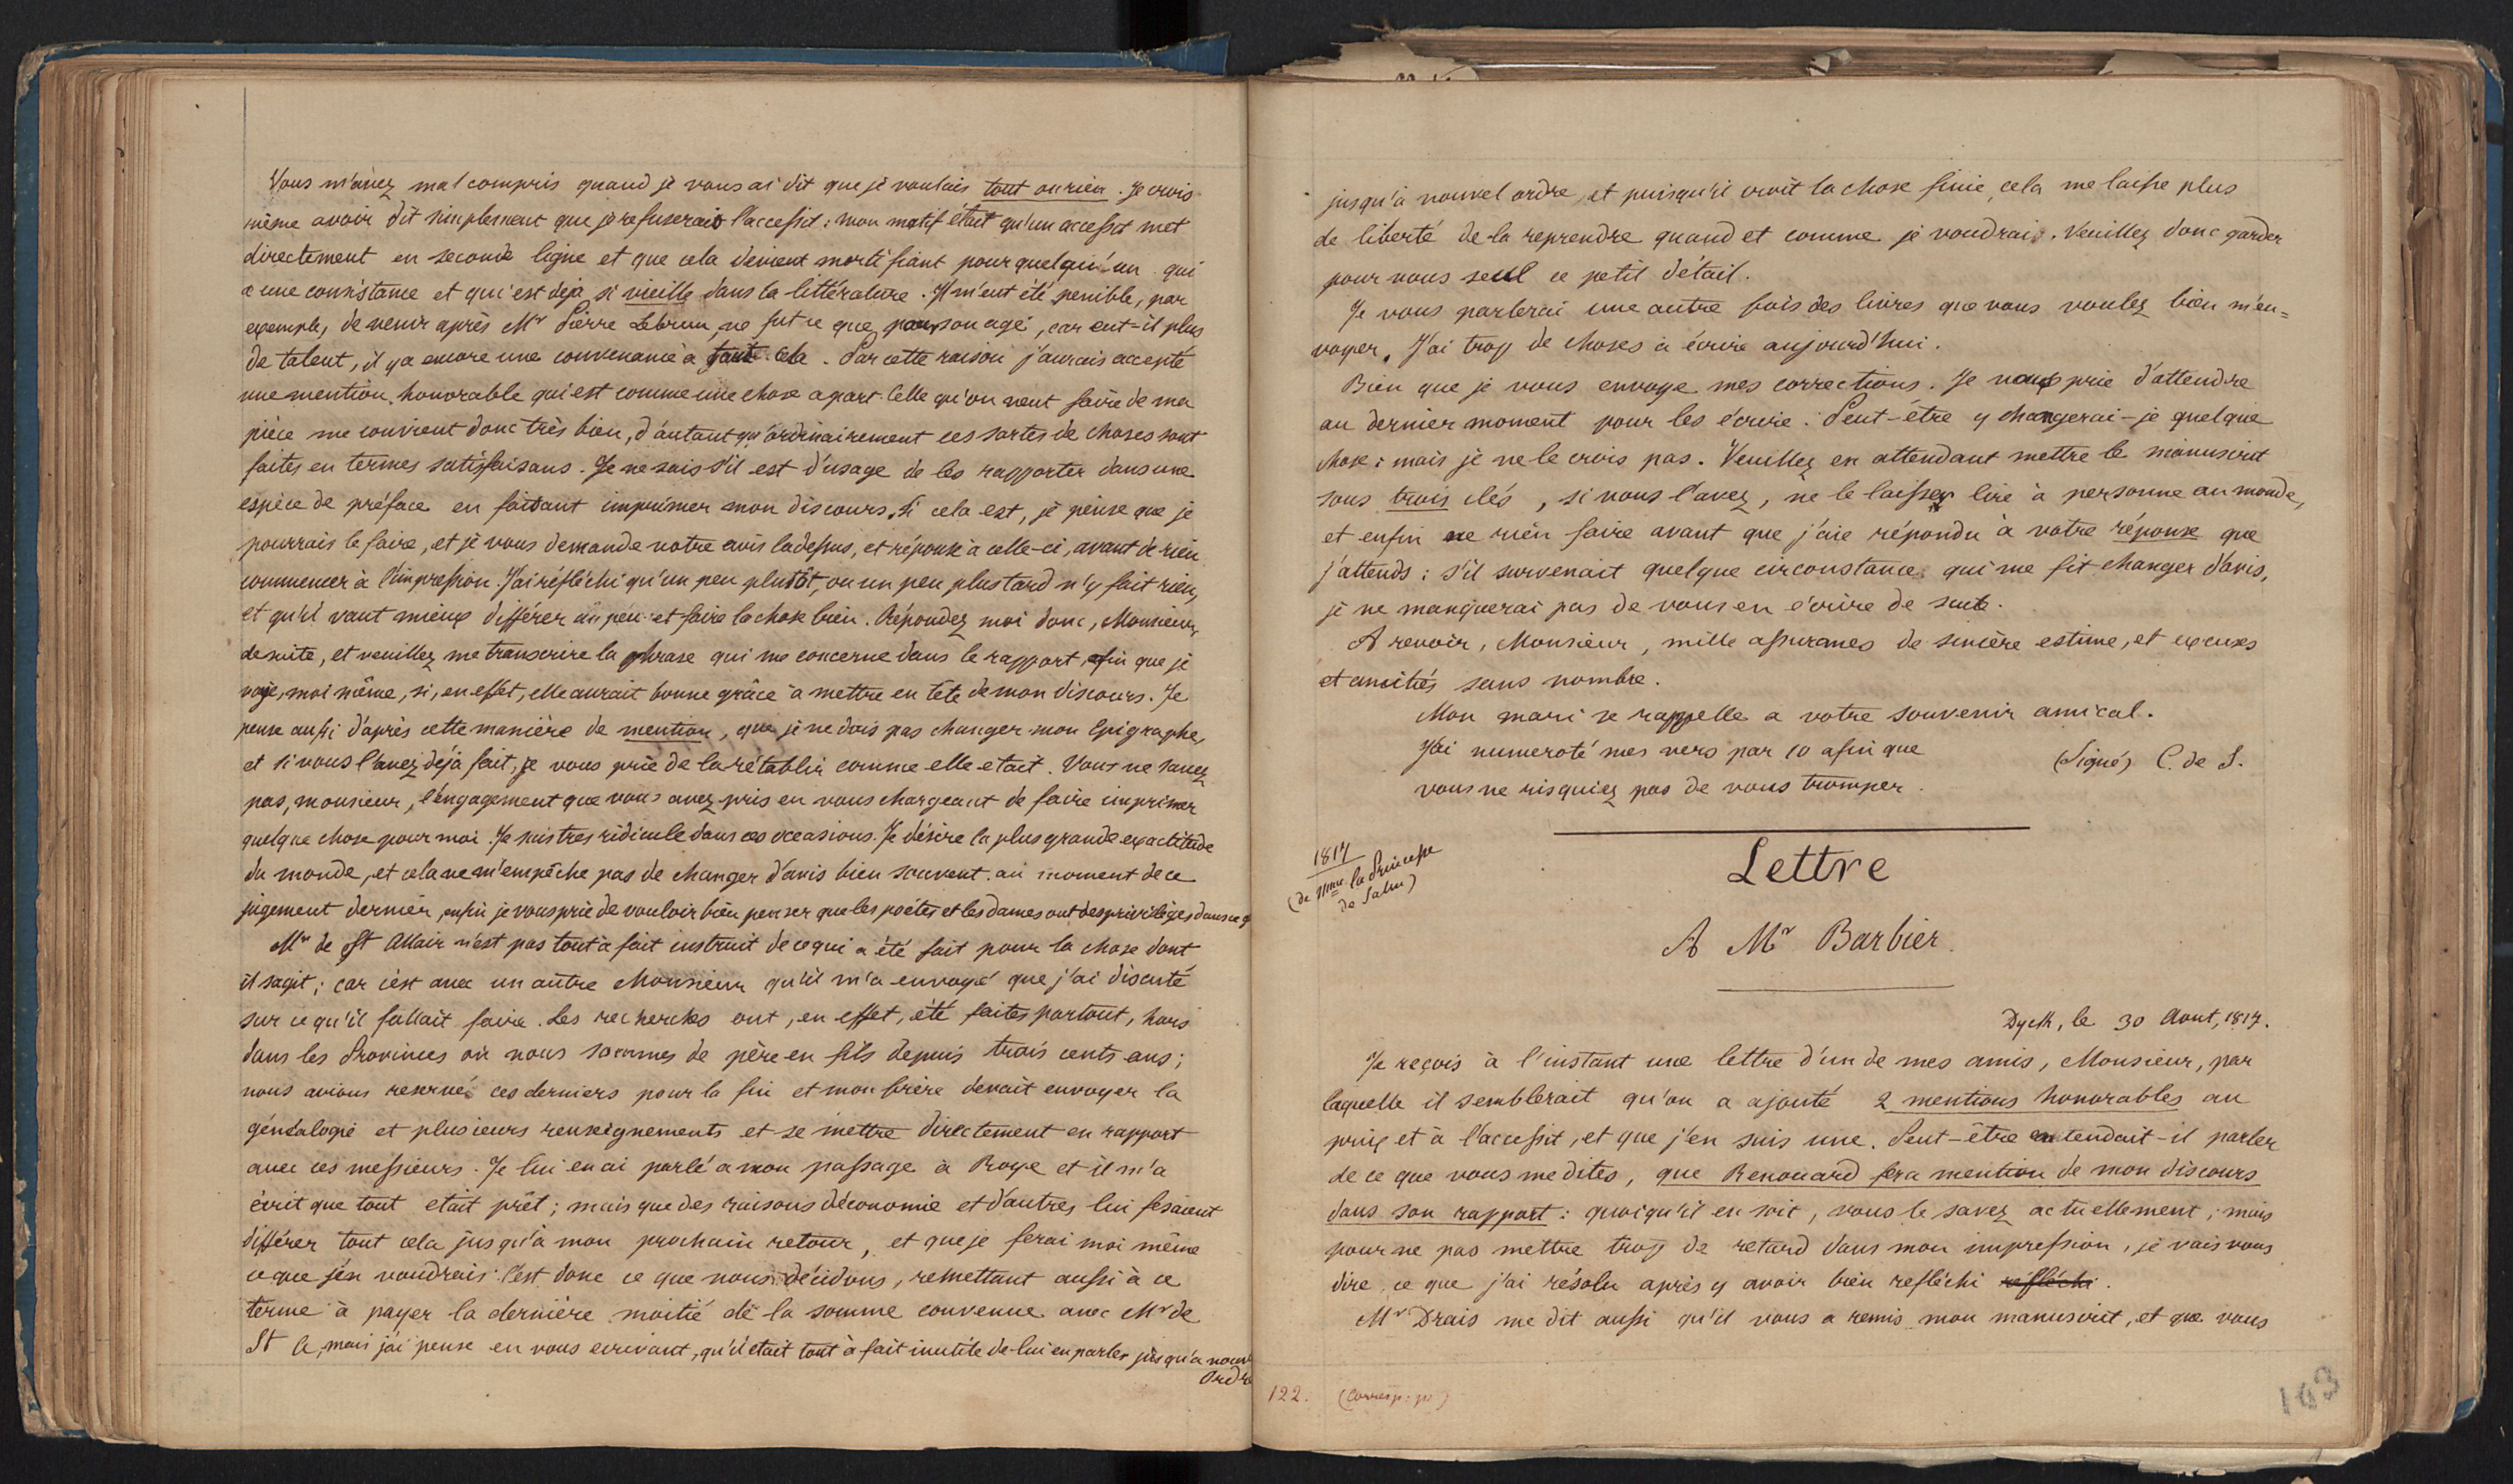 Vous m'avez mal compris quand je vous ai dit que je voulais tout ou rien. Je crois
même avoir dit simplement que je refuserais l'accessit : mon motif était qu'un accessit met
directement en seconde ligne et que cela devient mortifiant pour quelqu'un qui
a une consistance et qui est dejà si vieille dans la littérature. Il m'eut été penible, par
exemple, de venir après Mr Pierre Lebrun, ne fut ce que pour son age, car eut-il plus
de talent, il y a encore une convenance à tout cela. Par cette raison j'aurais accepté
une mention honorable qui est comme une chose apart. Celle qu'on veut faire de ma
pièce me convient donc très bien, d'autant qu'ordinairement ces sortes de choses sont
faites en termes satisfaisans. Je ne sais s'il est d'usage de les rapporter dans une
espèce de préface en faisant imprimer mon discours. Si cela est, je pense que je
pourrais le faire, et je vous demande votre avis ladessus, et réponse à celle-ci, avant de rien
commencer à l'impression. J'ai réfléchi qu'un peu plutôt, ou un peu plus tard n'y fait rien,
et qu'il vaut mieux différer un peu et faire la chose bien. Répondez moi donc, Monsieur,
de suite, et veuillez me transcrire la phrase qui me concerne dans le rapport, afin que je
voye, moi même, si, en effet, elle aurait bonne grâce à mettre en tête de mon discours. Je
pense aussi d'après cette manière de mention, que je ne dois pas changer mon Epigraphe,
et si vous l'avez déjà fait, je vous prie de la rétablir comme elle etait. Vous ne savez
pas, monsieur, l'engagement que vous avez pris en vous chargeant de faire imprimer
quelque chose pour moi. Je suis tres ridicule dans ces occasions. Je désire la plus grande exactitude
du monde, et cela ne m'empêche pas de changer d'avis bien souvent. au moment de ce
jugement dernier, enfin je vous prie de vouloir bien penser que les poëtes et les dames ont des privilèges dans ce q
Mr de St Allair n'est pas tout à fait instruit de ce qui a été fait pour la chose dont
il sagit ; car c'est avec un autre Monsieur qu'il m'a envoyé que j'ai discuté
sur ce qu'il fallait faire. Les recherches ont, en effet, été faites partout, hors
dans les Provinces où nous sommes de père en fils depuis trois cents ans ;
nous avions reservés ces derniers pour la fin et mon frère devait envoyer la
généalogie et plusieurs renseignements et se mettre directement en rapport
avec ces messieurs. Je lui en ai parlé a mon passage à Roye et il m'a
écrit que tout etait prêt ; mais que des raisons d'économie et d'autres lui fesaient
différer tout cela jusqu'à mon prochain retour, et que je ferai moi même
ce que j'en voudrais. C'est donc ce que nous décidons, remettant aussi à ce
terme à payer la dernière moitié de la somme convenue avec Mr de
St A, mais j'ai pensé en vous ecrivant, qu'il etait tout à fait inutile de lui en parler jusqu'à nouvel
Ordre
jusqu'à nouvel ordre, et puisqu'il croit la chose finie, cela me laisse plus
de liberté de la reprendre quand et comme je voudrais. Veuillez donc garder
pour vous seul ce petit détail.
Je vous parlerai une autre fois des livres que vous voulez bien m'en=
voyer. J'ai trop de choses à écrire aujourd'hui.
Bien que je vous envoye mes corrections. Je vous prie d'attendre
au dernier moment pour les écrire : Peut-être y changerai-je quelque
chose : mais je ne le crois pas. Veuillez en attendant mettre le manuscrit
sous trois clés, si vous l'avez, ne le laisser lire à personne au monde,
et enfin ne rien faire avant que j'aie répondu à votre réponse que
j'attends : s'il survenait quelque circonstance qui me fit changer d'avis,
je ne manquerai pas de vous en écrire de suite.
A revoir, Monsieur, mille assurances de sincère estime, et excuses
et amitiés sans nombre.
Mon mari se rappelle a votre souvenir amical.
J'ai numeroté mes vers par 10 afin que
(Signé) C. de S.
vous ne risquiez pas de vous tromper.
1817
(de Mme la Princesse
de Salm)
Lettre
A Mr Barbier.
Dyck, le 30 Aout, 1817.
Je reçois à l'instant une lettre d'un de mes amis, Monsieur, par
laquelle il semblerait qu'on a ajouté 2 mentions honorables au
prix et à l'accessit, et que j'en suis une. Peut-être entendait-il parler
de ce que vous me dites, que Renouard fera mention de mon discours
dans son rapport : quoiqu'il en soit, vous le savez actuellement ; mais
pour ne pas mettre trop de retard dans mon impression, je vais vous
dire ce que j'ai résolu après y avoir bien refléchi réfléchi.
Mr Drais me dit aussi qu'il vous a remis mon manuscrit, et que vous
122. (Corresp. pr)
193